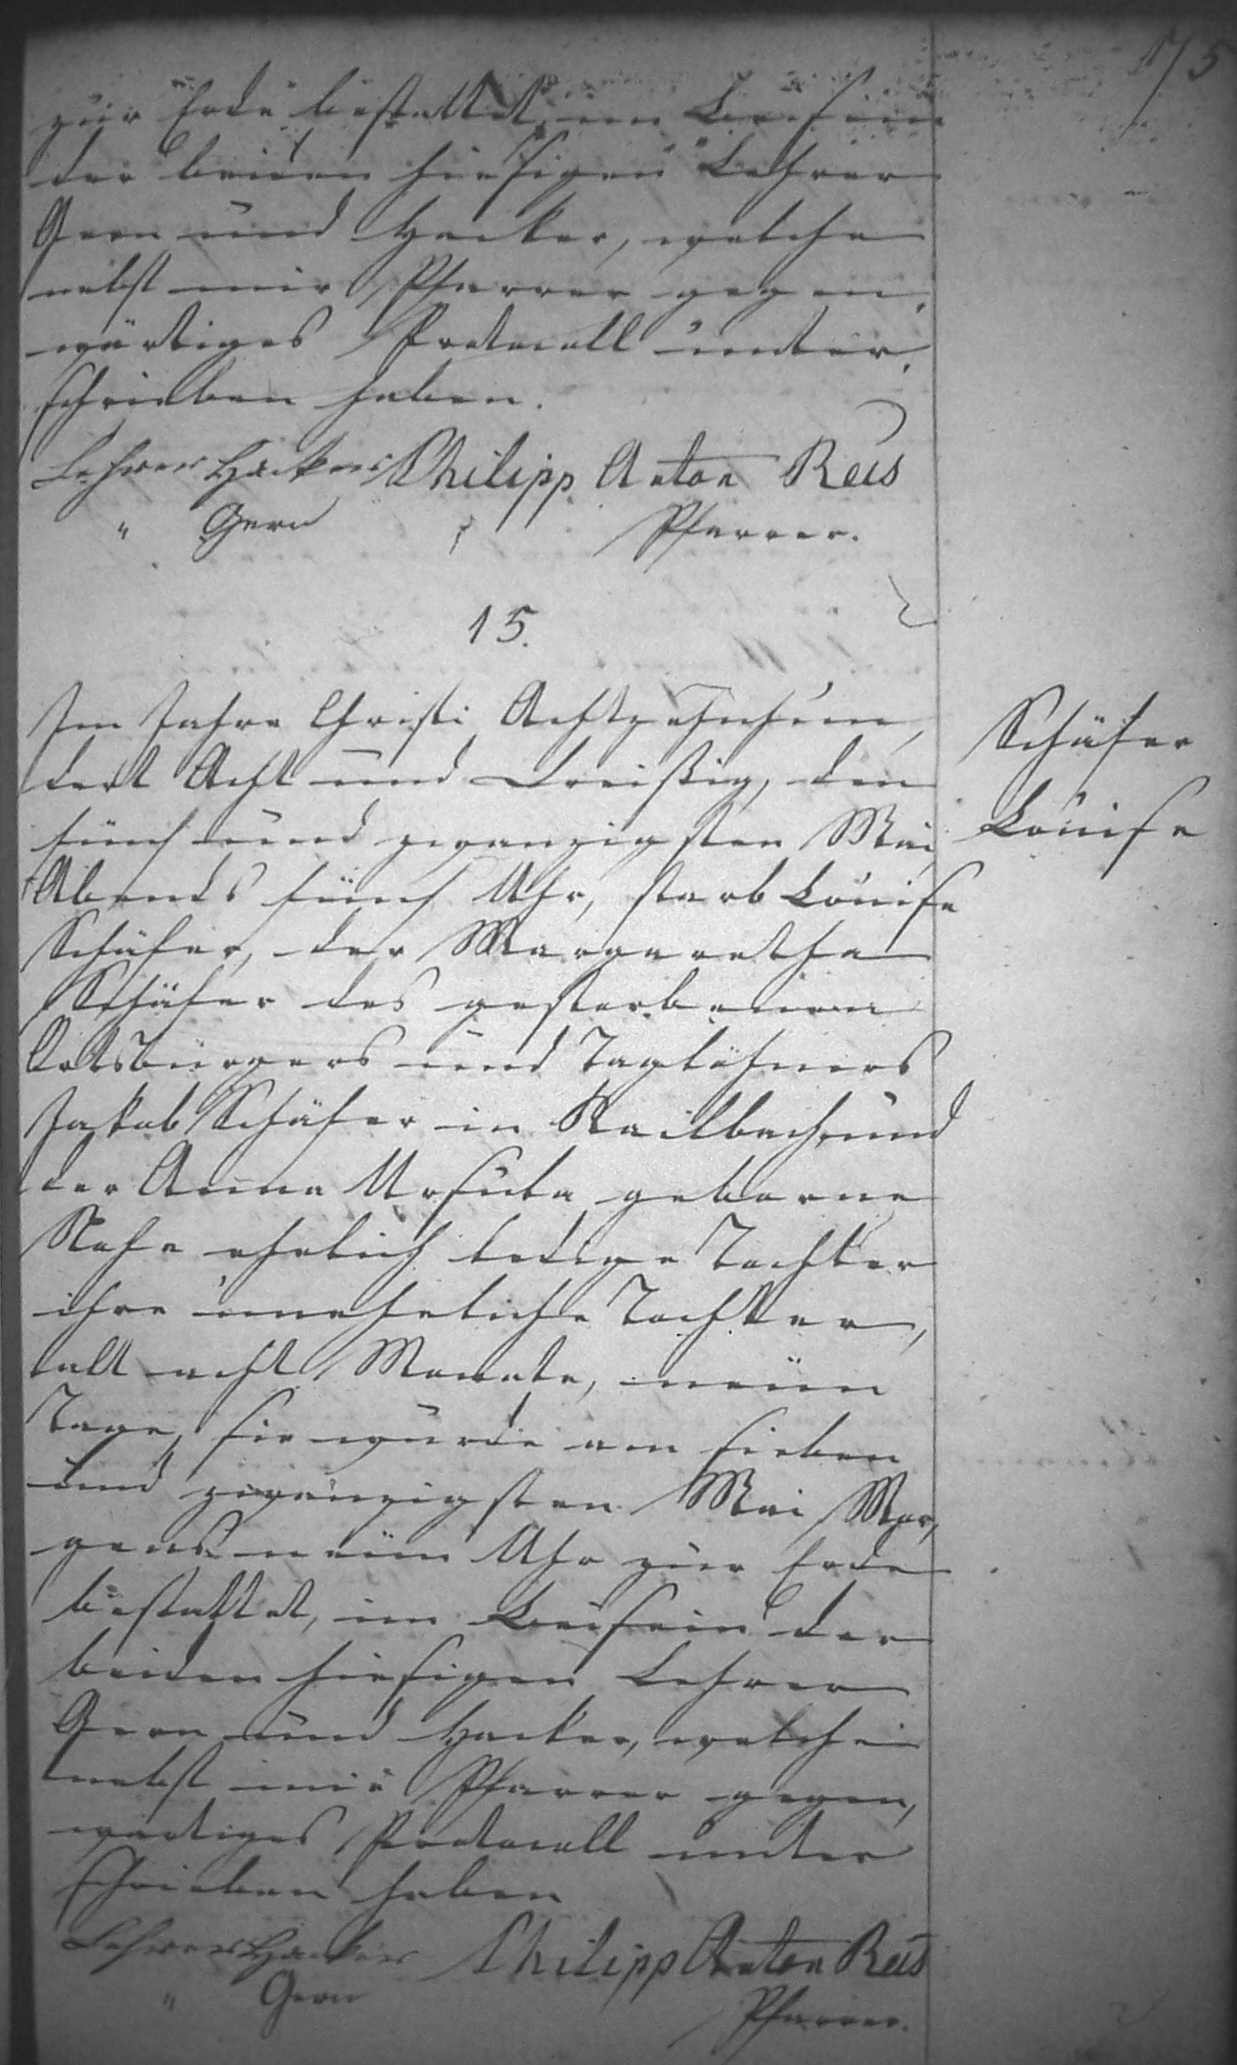 175
zur Erde bestattet, im Beisein
der beiden hiesigen Lehrer
Gern und Hacker, welche
nebst mir Pfarrer gegen,
wärtiges Protocoll unter,
schrieben haben.
Lehrer Hacker Philipp Anton Reis
" Gern Pfarrer.
15.
Im Jahre Christi Achtzehnhun,
dert Acht und Dreißig, den
fünf und zwanzigsten Mai,
Abends fünf Uhr, starb Louise
Schäfer, der Margaretha
Schäfer des gestorbenen
Ortsbürgers und Taglöhners
Jakob Schäfer in Railbach, und
der Anna Ursula geborne
ehelich ledige Tochter
ihre uneheliche Tochter,
alt acht Monate, neun
Tage, sie wurde am sieben
und zwanzigsten Mai Mor,
gens neun Uhr zur Erde
bestattet, im Beisein der
beiden hiesigen Lehrer
Gern und Hacker, welche
nebst mir Pfarrer gegen,
wärtiges Protocoll unter
schrieben haben
Lehrer Hacker Philipp Anton Reis
" Gern Pfarrer.
Schäfer
Louise